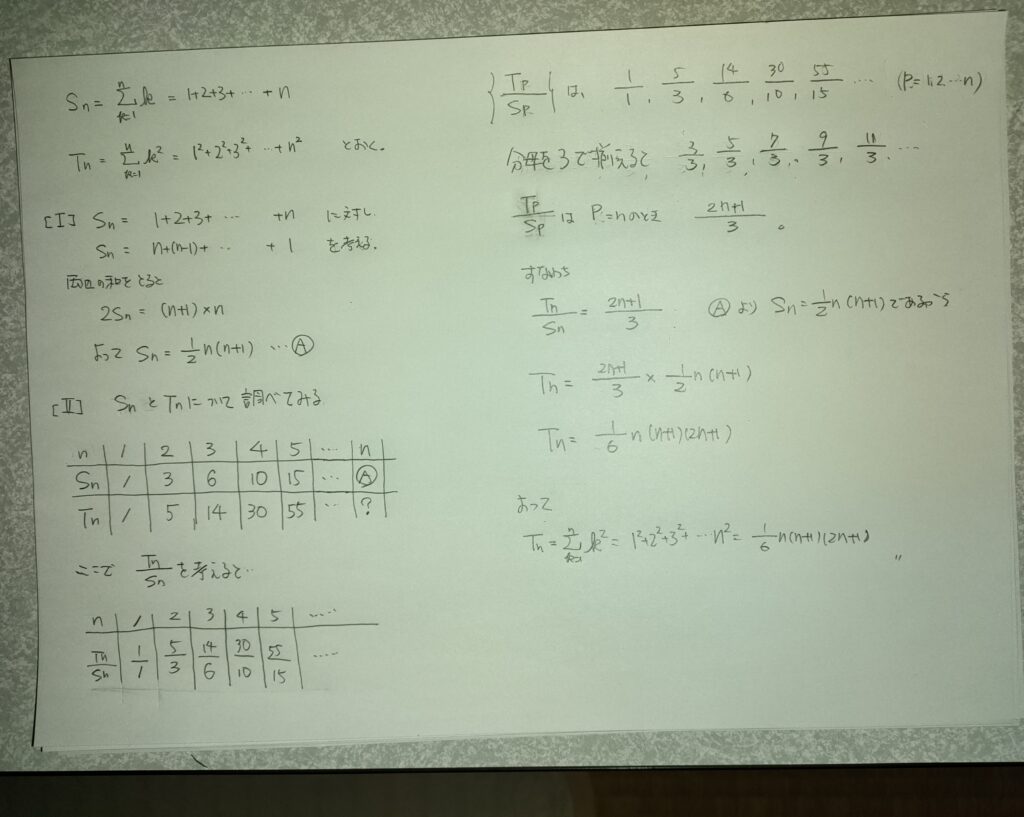 Sn = Σ_{k=1}^{n} k = 1+2+3+ ‥ +n
Tn = Σ_{k=1}^{n} k² = 1²+2²+3²+ ‥ +n² とおく。
[Ⅰ] Sn = 1+2+3+ ‥ +n に対し
Sn = n+(n-1)+ ‥ + 1 を考える.
両辺の和をとると
2Sn = (n+1)×n
よって Sn = 1/2 n(n+1) … Ⓐ
[Ⅱ] SnとTnについて調べてみる
n | 1 | 2 | 3 | 4 | 5 | … | n
Sn | 1 | 3 | 6 | 10 | 15 | … | Ⓐ
Tn | 1 | 5 | 14 | 30 | 55 | … | ?
ここで Tn/Sn を考えると…
n | 1 | 2 | 3 | 4 | 5 | ……
Tn/Sn | 1/1 | 5/3 | 14/6 | 30/10 | 55/15 | ……
{Tp/Sp} は、 1/1, 5/3, 14/6, 30/10, 55/15 … (P=1,2…n)
分母を3で揃えると 3/3, 5/3, 7/3, 9/3, 11/3, …
Tp/Sp は P=nのとき 2n+1/3 。
すなわち
Tn/Sn = 2n+1/3 Ⓐより Sn = 1/2 n(n+1)であるから
Tn = 2n+1/3 × 1/2 n(n+1)
Tn = 1/6 n(n+1)(2n+1)
よって
Tn = Σ_{k=1}^{n} k² = 1²+2²+3²+ … n² = 1/6 n(n+1)(2n+1) 〃